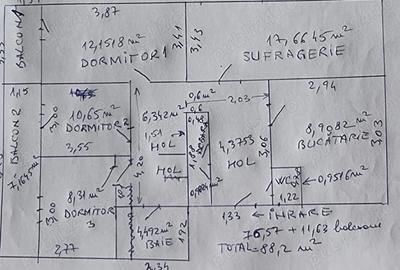 3,87
12,1518 m²
DORMITOR 1
3,41
3,43
17,6645 m²
SUFRAGERIE
BALCON 1
1,15
10,65 m²
DORMITOR 2
3,00
3,55
BALCON 2
6,342 m²
1,51
HOL
HOL
4,20
0,6 m²
0,6
2,03
1,88
4,3753
HOL
3,06
2,94
8,9082 m²
BUCATARIE
3,03
WC
0,9516 m²
1,22
8,31 m²
DORMITOR
3
3,00
2,77
4,492 m²
BAIE
1,92
2,34
1,33
INTRARE
76,57 + 11,63 balcoane
TOTAL = 88,2 m²